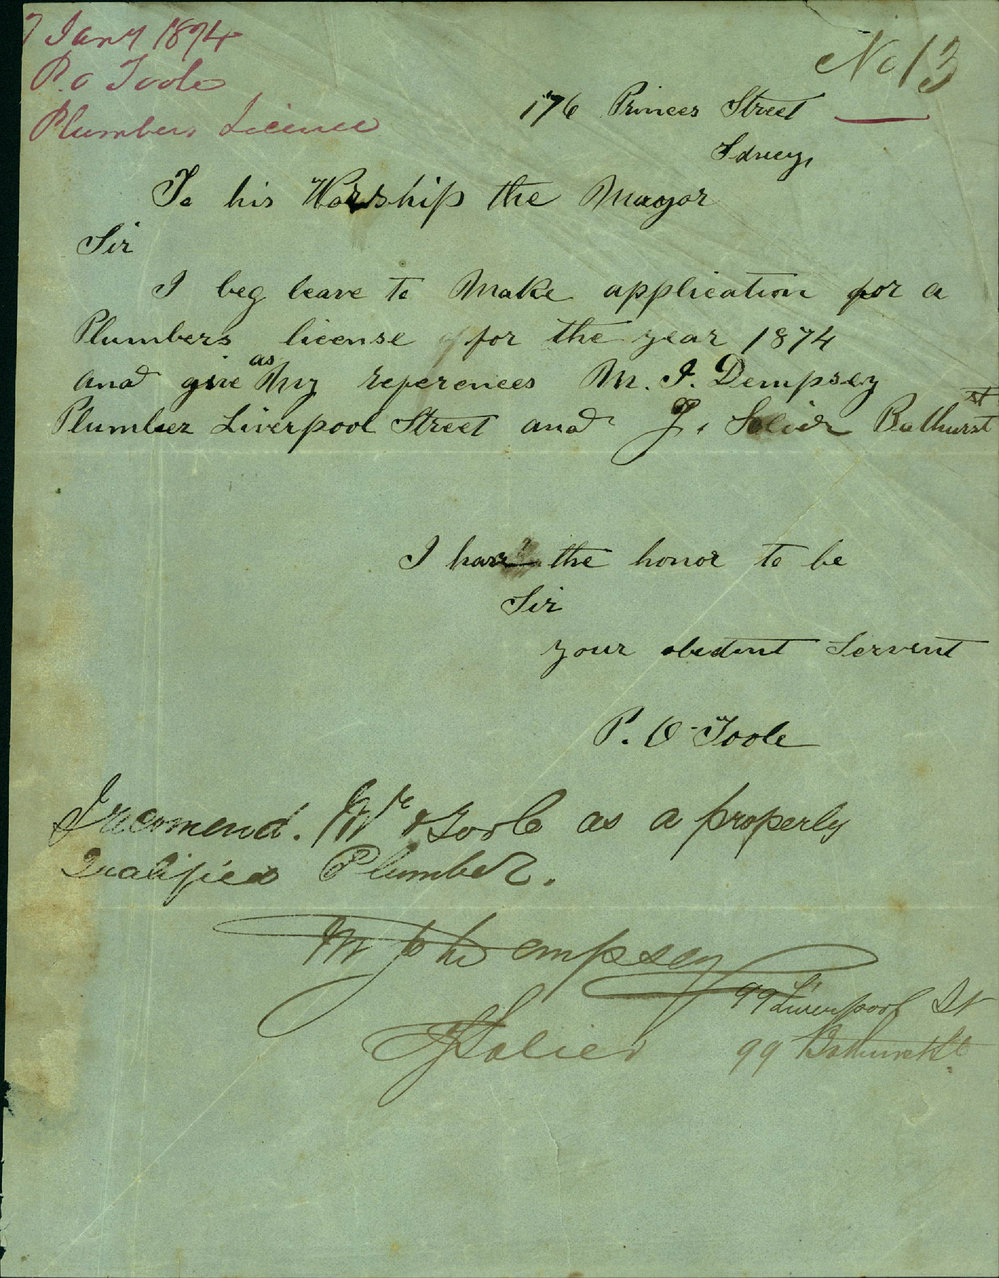 7 Jany 1874
P. O Toole
Plumbers Licence
No 13
176 Princes Street
Sdney,
To his Worship the Mayor
Sir
I beg leave to Make application for a
Plumbers license for the year 1874
and give as my references M. J. Dempsey
Plumber Liverpool Street and J. Solier Bathurst St
I have the honor to be
Sir
your obedint Servent
P. O-Toole
I recomend. Mr OToole as a properly
Qualified Plumber.
M John Dempsey
99 Liverpool St
J Solier 99 Bathurst St